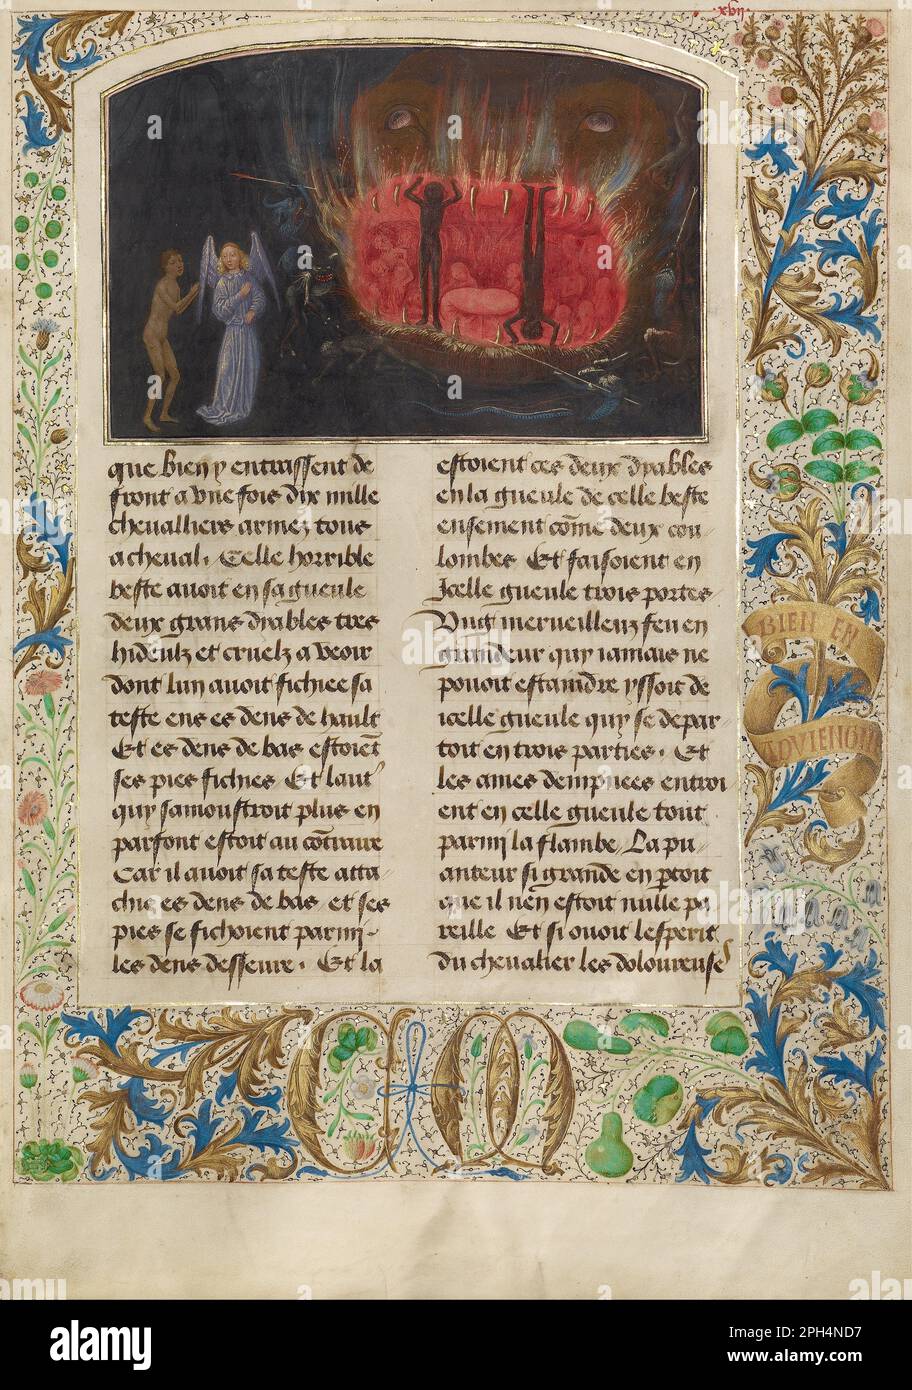 .xvij.
que bien y entrassent de
front a vne fois dix mille
cheualliers armez tous
a cheual. Celle horrible
beste auoit en sa gueule
deux grans dyables tres
hideulz et cruelz a veoir
dont lun auoit fichiee sa
teste ens es dens de hault
Et es dens de bas estoiẽt
ses pies fichies. Et laut'
quy samoustroit plus en
parfont estoit au cõtraire
Car il auoit sa teste atta-
chie es dens de bas. et ses
pies se fichoient parmi
les dens desseure. Et la
estoient ces deux dyables
en la gueule de celle beste
ensement cõme deux cou
lombes. Et faisoient en
Jcelle gueule trois portes
Vng merueilleux feu en
grandeur quy iamais ne
pouoit estaindre yssoit de
icelle gueule quy se depar
toit en trois parties. Et
les ames dempnees entroi
ent en celle gueule tout
parmi la flambe. La pu
anteur si grande en ptoit
que il nen estoit nulle pa
reille. Et si ouoit lesperit
du cheualier les doloreuses
BIEN EN
ADVIENGNE
alamy
Image ID: 2PH4ND7
www.alamy.com